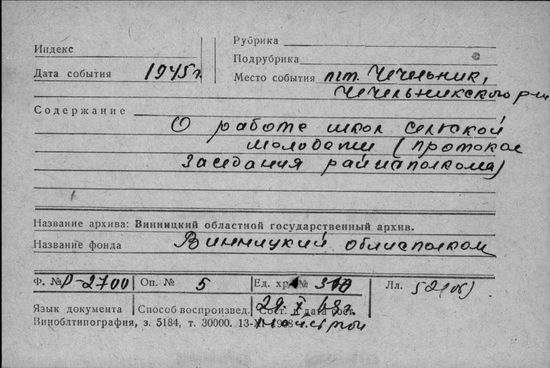 Индекс
Рубрика
Подрубрика
Дата события 1945 г.
Место события пгт. Чечельник,
Чечельникского р-н
Содержание
О работе школ сельской
молодежи (протокол
заседания райисполкома)
Название архива: Винницкий областной государственный архив.
Название фонда Винницкий облисполком
Ф. № Р-2700 Оп. № 5 Ед. хр. № Лл. 52(об)
Язык документа Способ воспроизвед. Сост. и дата сост.
Виноблтипография, з. 5184, т. 30000. 13-